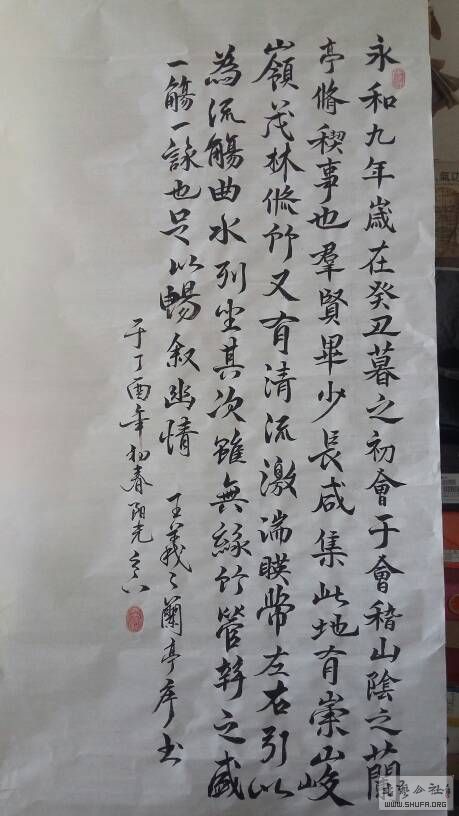 永和九年歲在癸丑暮之初會于會稽山陰之蘭
亭脩稧事也羣賢畢少長咸集此地有崇峻
嶺茂林脩竹又有清流激湍暎帶左右引以
為流觴曲水列坐其次雖無絲竹管弦之盛
一觴一詠也足以暢叙幽情 王羲之蘭亭序书
于丁酉年初春阳光
WWW.SHUFA.ORG